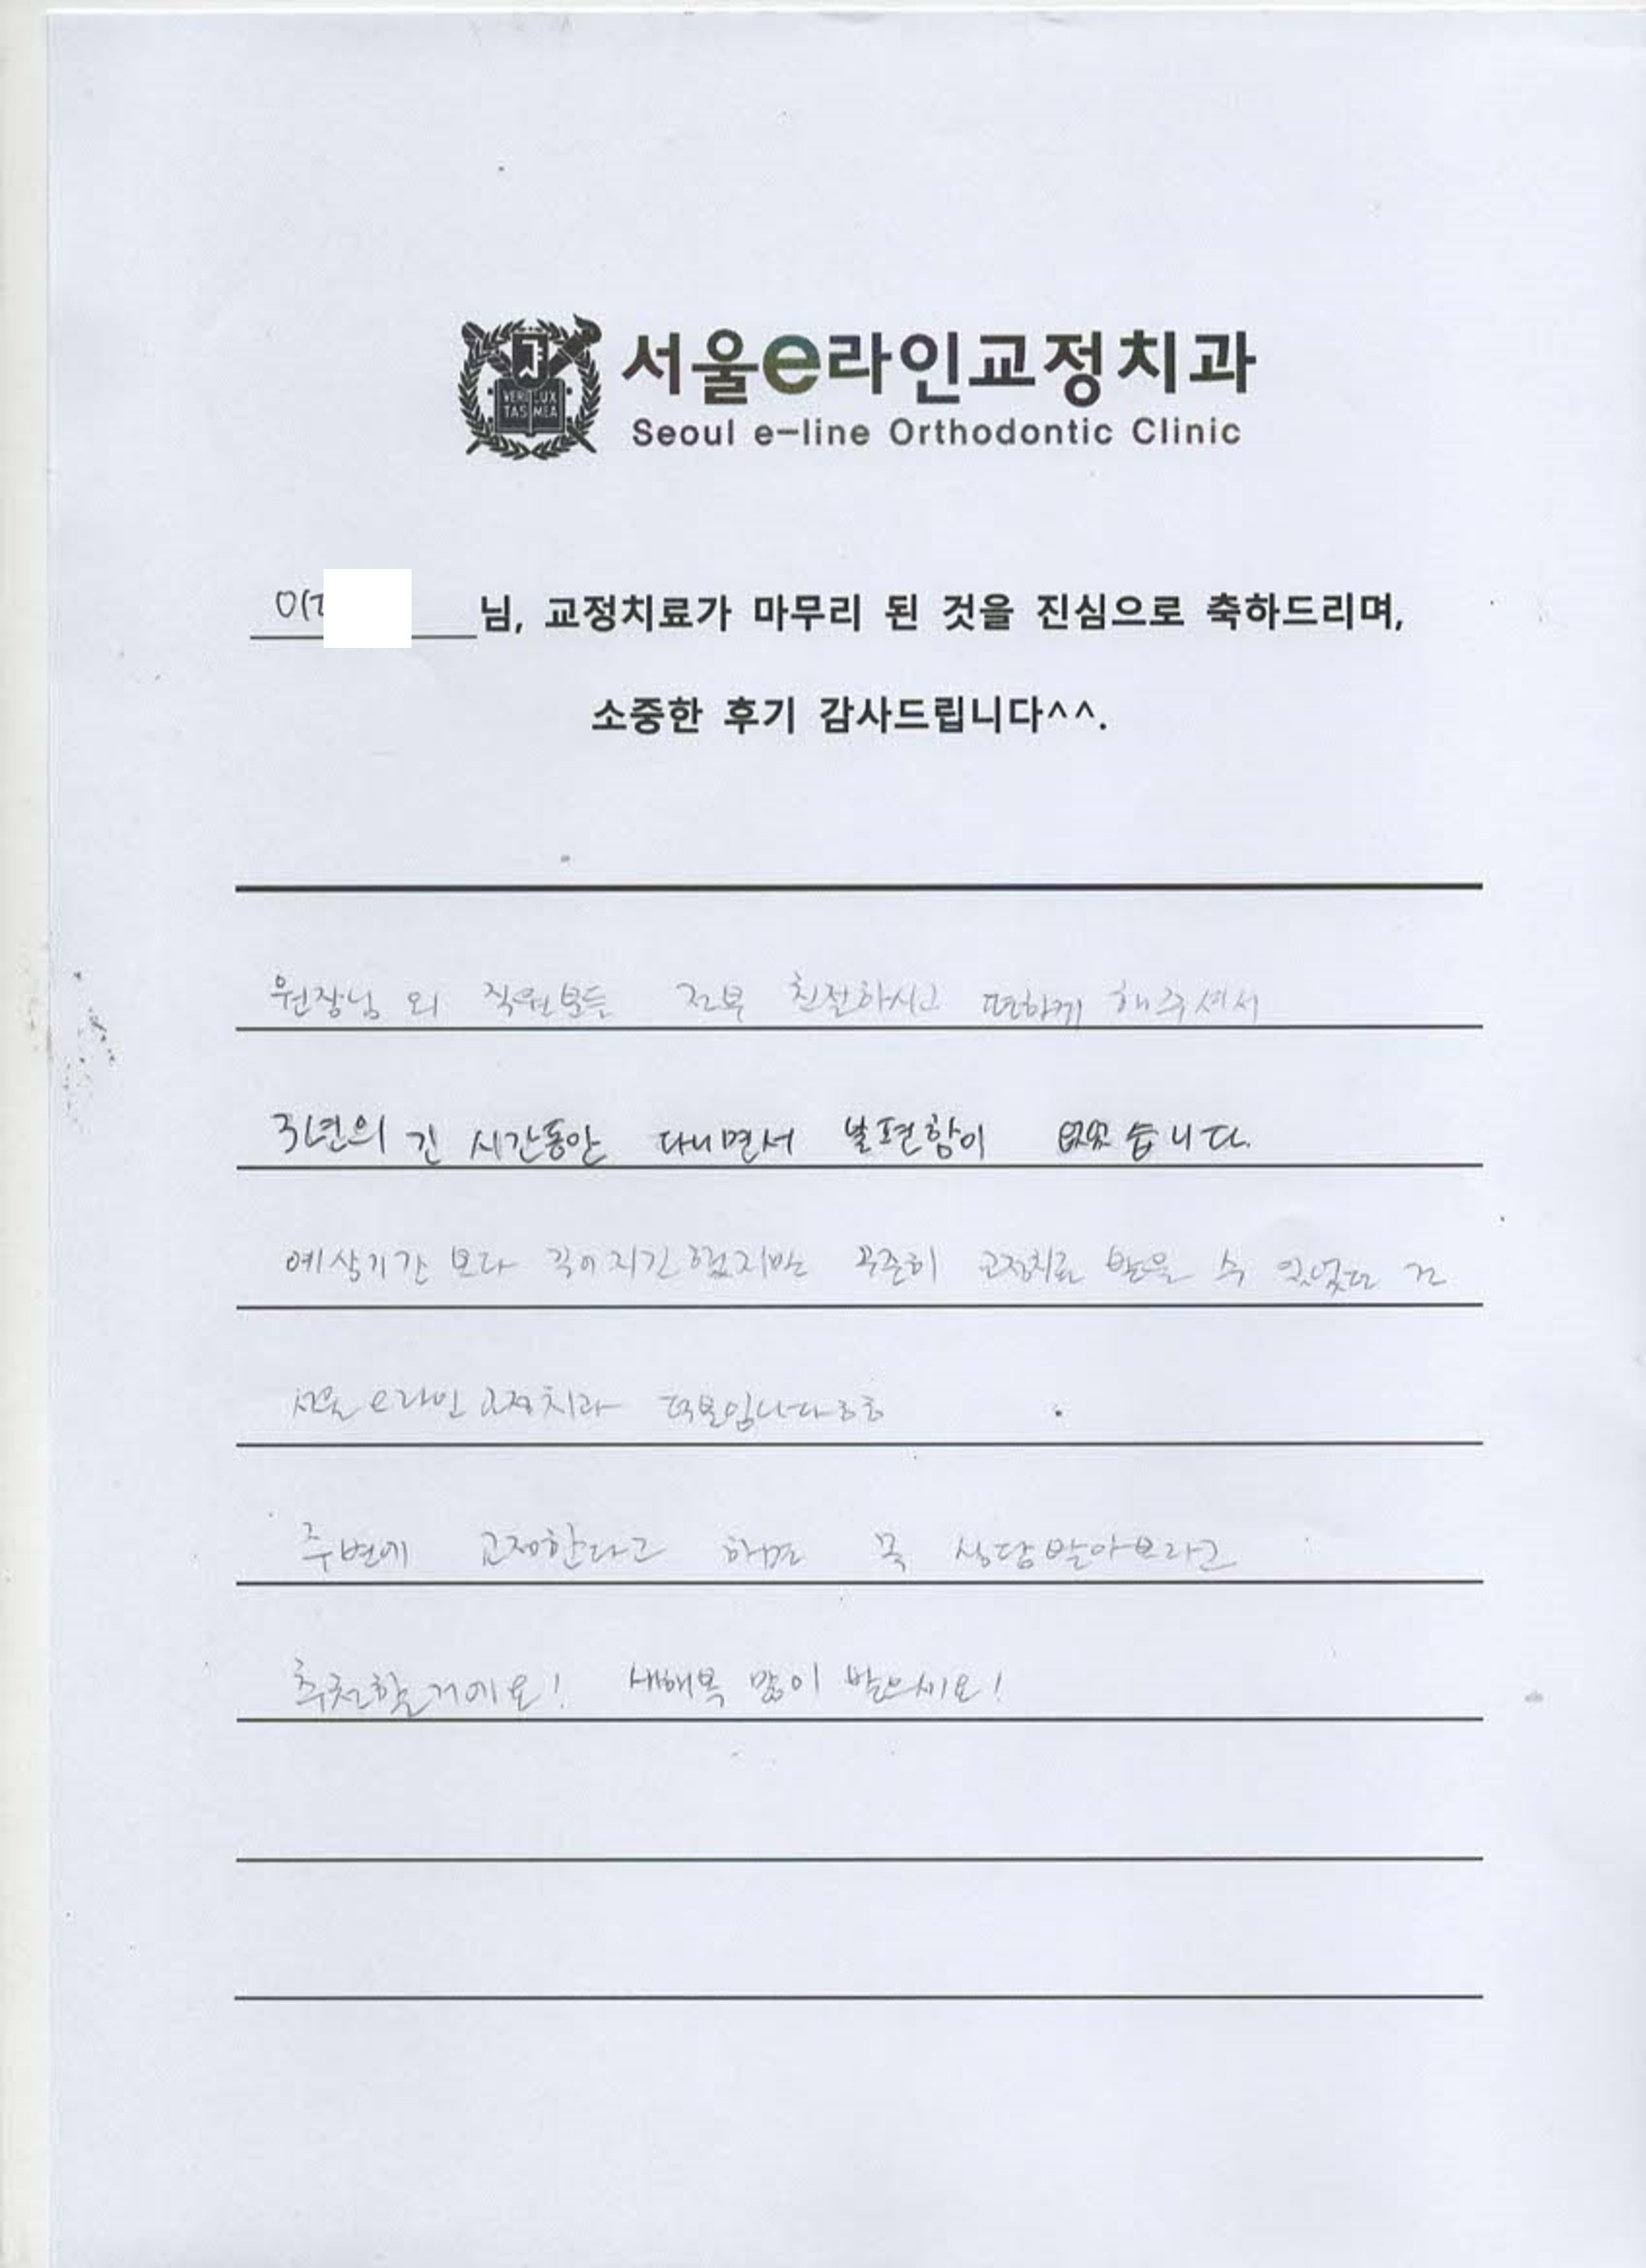 VERI LUX
TAS MEA
서울e라인교정치과
Seoul e-line Orthodontic Clinic
이 님, 교정치료가 마무리 된 것을 진심으로 축하드리며,
소중한 후기 감사드립니다^^.
원장님 외 직원분들 전부 친절하시고 편하게 해주셔서
3년의 긴 시간동안 다니면서 불편함이 없었습니다.
예상기간 보다 길어지긴했지만 꾸준히 교정치료 받을 수 있었던 건
서울e라인교정치과 덕분입니다ㅎㅎ
주변에 교정한다고 하면 꼭 상담받아보라고
추천할거에요! 새해복 많이 받으세요!